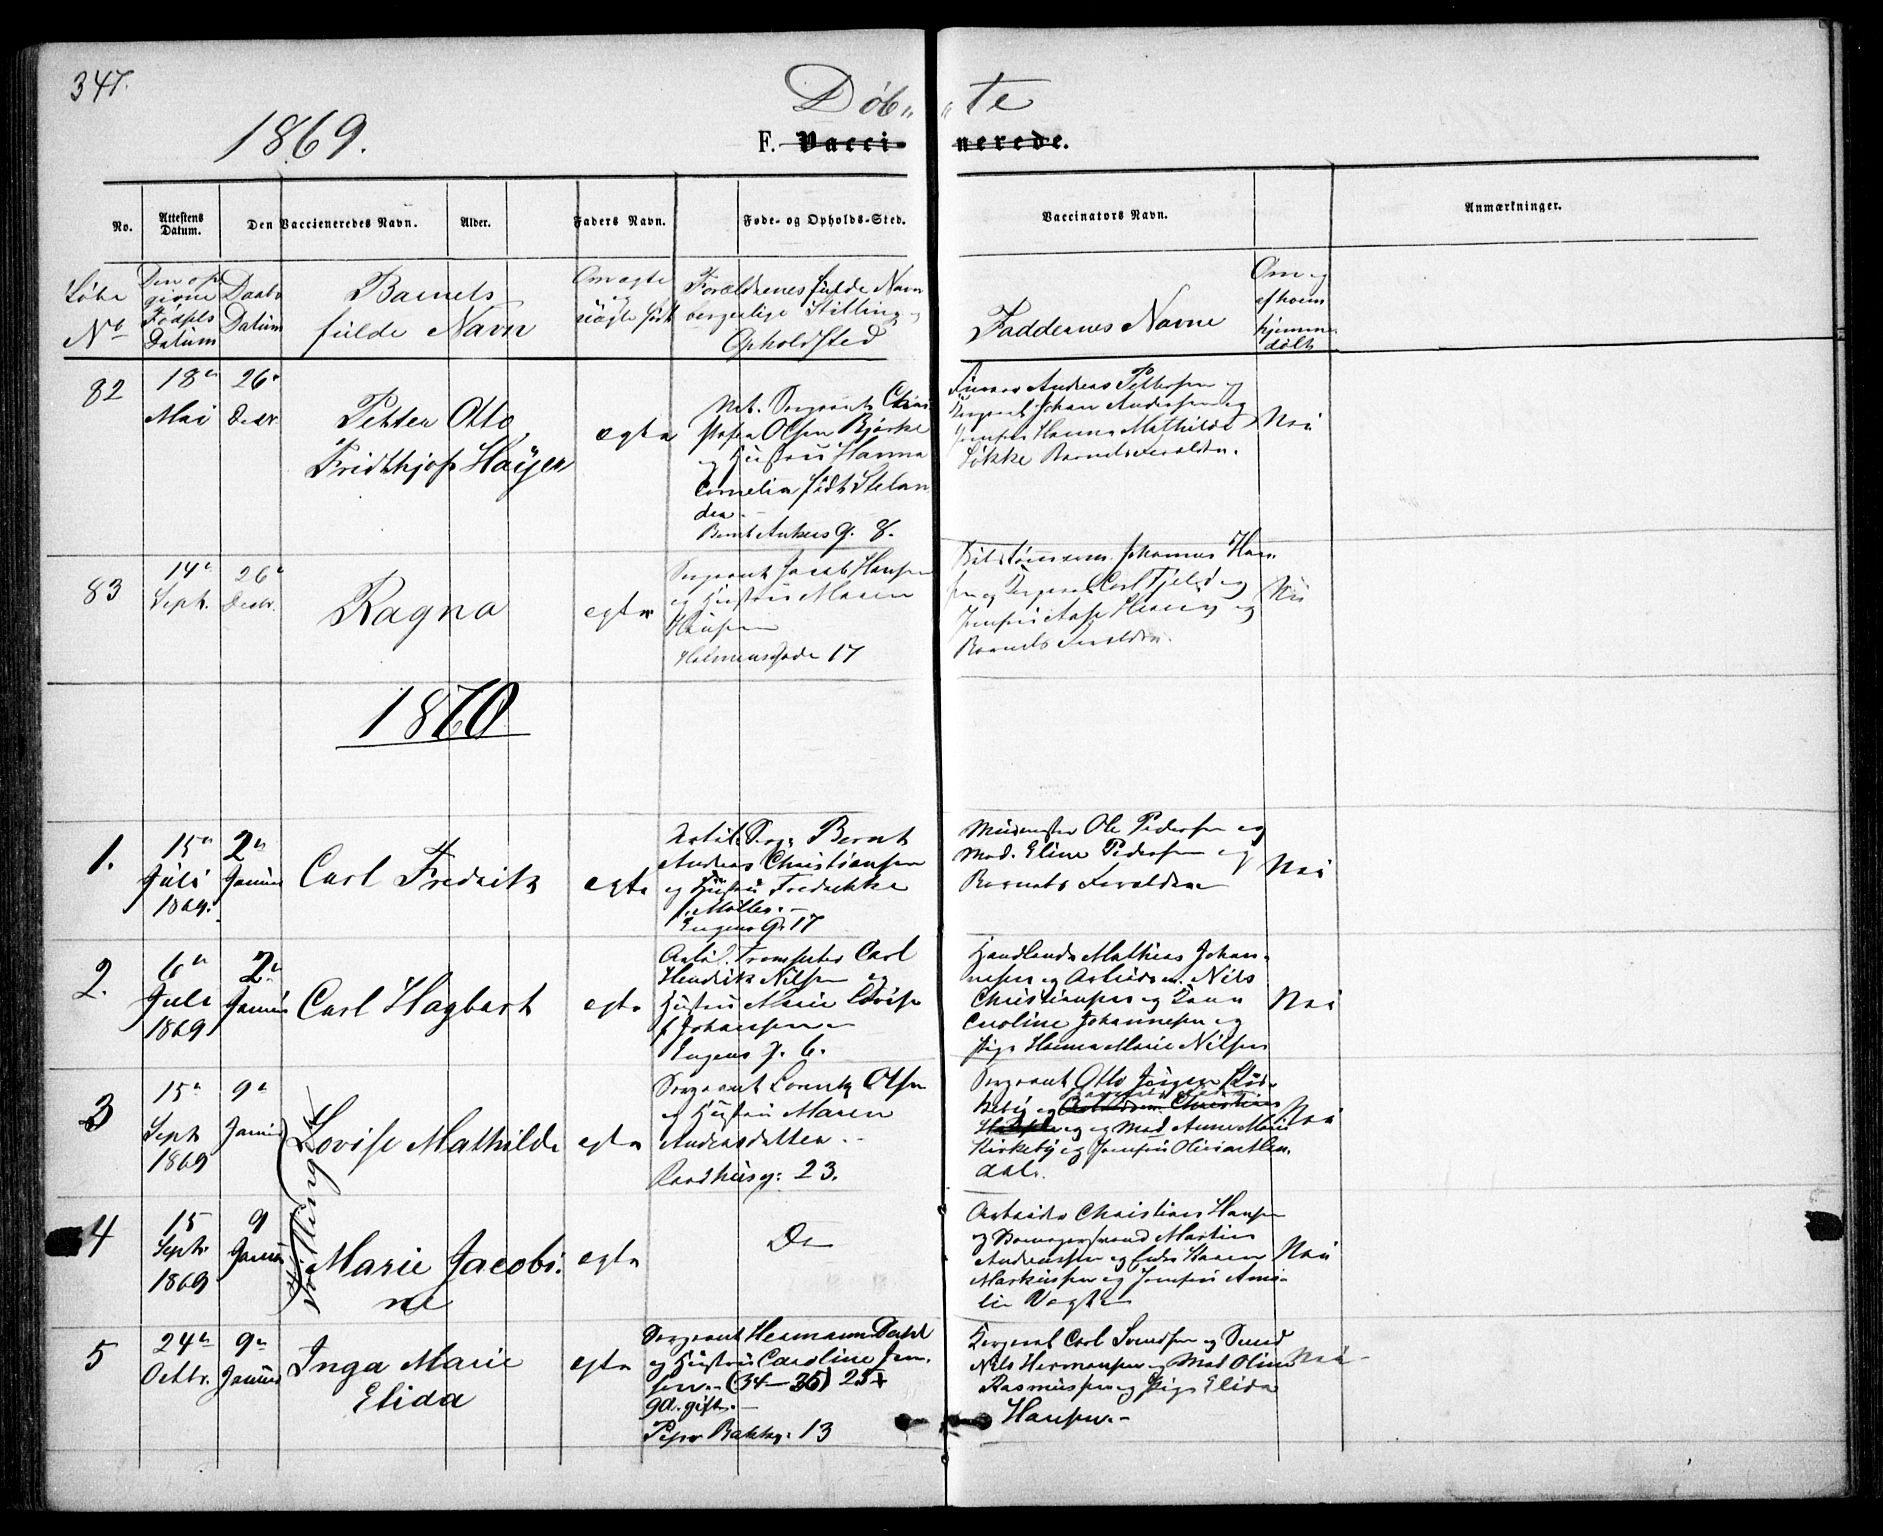 347.
Døbte
1869.
F. Vaccinerede.
No.
Attestens Datum.
Den Vaccieneredes Navn.
Alder.
Faders Navn.
Føde- og Opholds-Sted.
Vaccinators Navn.
Anmærkninger.
Løbe No
Den opgivne Fødsels Datum
Daabs Datum
Barnets fulde Navn
Om ægte og uægte født
Forældrenes fulde Navn
borgerlige Stilling og
Opholdsted
Faddernes Navne
Om og af hvem hjemmedøbt
82
18de Mai
26de Decbr.
Petter Otto
Fridthjof Høyer
egte
Nat. Sergeant Chri
stofer Olsen Bjørke
og Hustru Hanna
Cornelia født Stelan
der
Bernt Ankers G. 8.
Andreas Pettersen og
Sergeant Johan Andersen og
Jomfru Hanna Mathilde
Løkke Barnets Forældre.
Nei
83
14de Sept.
26de Decbr.
Ragna
egte
Sergeant Jacob Hansen
og Hustru Maren
Hansen
Holmensgade 17
Johannes Han
sen og Sergeant Carl Fjeld og
Jomfru og
Barnets Forældre.
Nei
1870
1.
15de Juli 1869.
2den Januar
Carl Fredrik
egte
Artill. Serg. Bernt
Andreas Christiansen
og Hustru Fredrikke
f. Møller.
Eugens G. 17
Murmester Ole Pedersen og
Mad. Eline Pedersen og
Barnets Forældre
Nei
2.
6te Juli 1869
2den Januar
Carl Hagbart
egte
Artil. Trompeter Carl
Hendrik Nilsen og
Hustru Marie Lovise
f. Johansen
Eugens g. 6.
Handlende Mathias Johan-
nesen og Arbeidsm. Nils
Christiansen og Kone
Caroline Johannesen og
Pige Hanna Marie Nilsen
Nei
3
15de Sept 1869
9de Januar
Lovise Mathilde
egte
Sergeant Lorentz Olsen
og Hustru Maren
Andreasdatter.
Raadhusg. 23.
Sergeant Otto Jørgen Kir-
keby og Arbeidsm. Christian
Hansen og Mad Anne Marie
Kirkeby og Jomfru
dal.
Nei
Tvillinger
4
15 Septbr 1869
9 Januar
Marie Jacobi-
ne
egte
Do
Arbeider Christian Hansen
og Martin
Andreassen og Enke Karen
Markussen og Jomfru Ama-
lie Vogter
Nei
5
24de Octbr.
9de Januar
Inga Marie
Elida
egte
Sergeant Hermann Dahl
og Hustru Caroline Jen-
sen (34-35) 25
gd. gift.
Peser Bakkeg. 13
Sergeant Carl Svendsen og Svend
Nils Hermansen og Mad Oline
Rasmussen og Pige Elida
Hansen
Nei